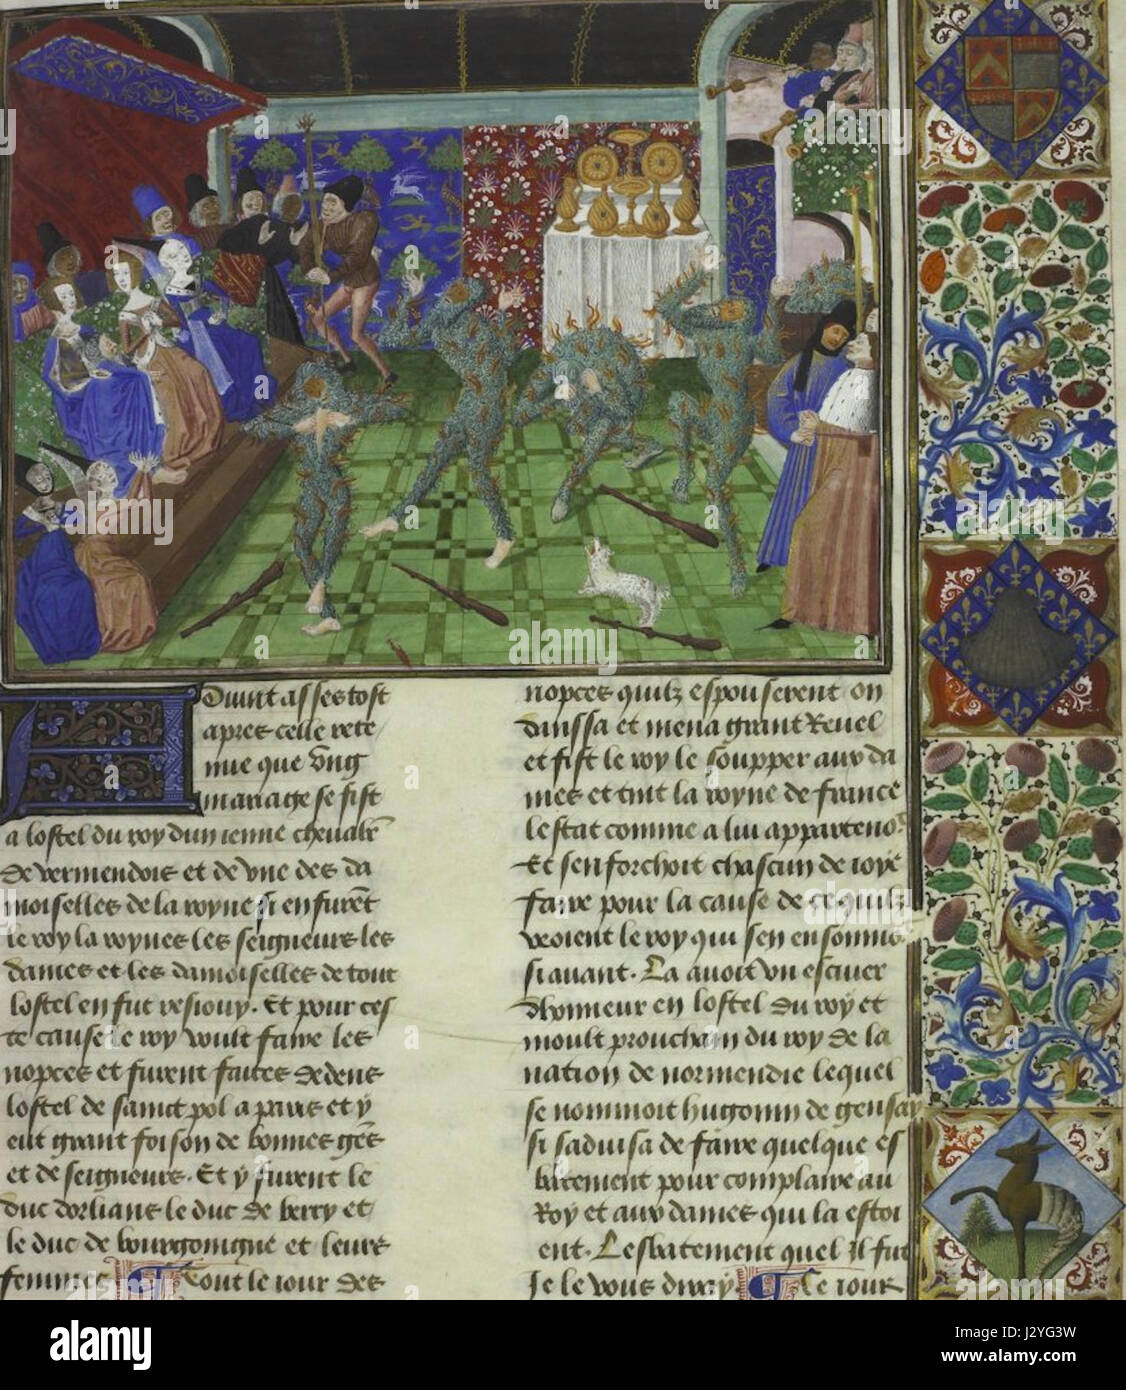 Advint asses tost
apres celle rete
nue que ung
mariage se fist
a lostel du roy dun ienne chevalr̄
de vermendois et de vne des da
moiselles de la royne si en furēt
le roy la roynes les seigneurs les
dames et les damoiselles de tout
lostel en fut resiouy. Et pour ces
te cause le roy voult faire les
nopces et furent faites dedens
lostel de sainct pol a paris et y
eut grant foison de bonnes gēs
et de seigneurs. Et y furent le
duc dorlians le duc de berry et
le duc de bourgoingne et leurs
femmes Tout le iour des
nopces quilz espouserent on
danssa et mena grant Revel
et fist le roy le soupper aux da
mes et tint la royne de france
lestat comme a lui apparteno
Et senforchoit chascun de ioye
faire pour la cause de ce quilz
veoient le roy qui sen ensonnio
si avant. La avoit vn escuier
dhonneur en lostel du roy et
moult prouchain du roy de la
nation de normendie lequel
se nommoit hugonin de gensay
si sadvisa de faire quelque es
batement pour complaire au
Roy et aux dames qui la estoi
ent. Lesbatement quel il fut
Je le vous diray Le iour
alamy
Image ID: J2YG3W
www.alamy.com